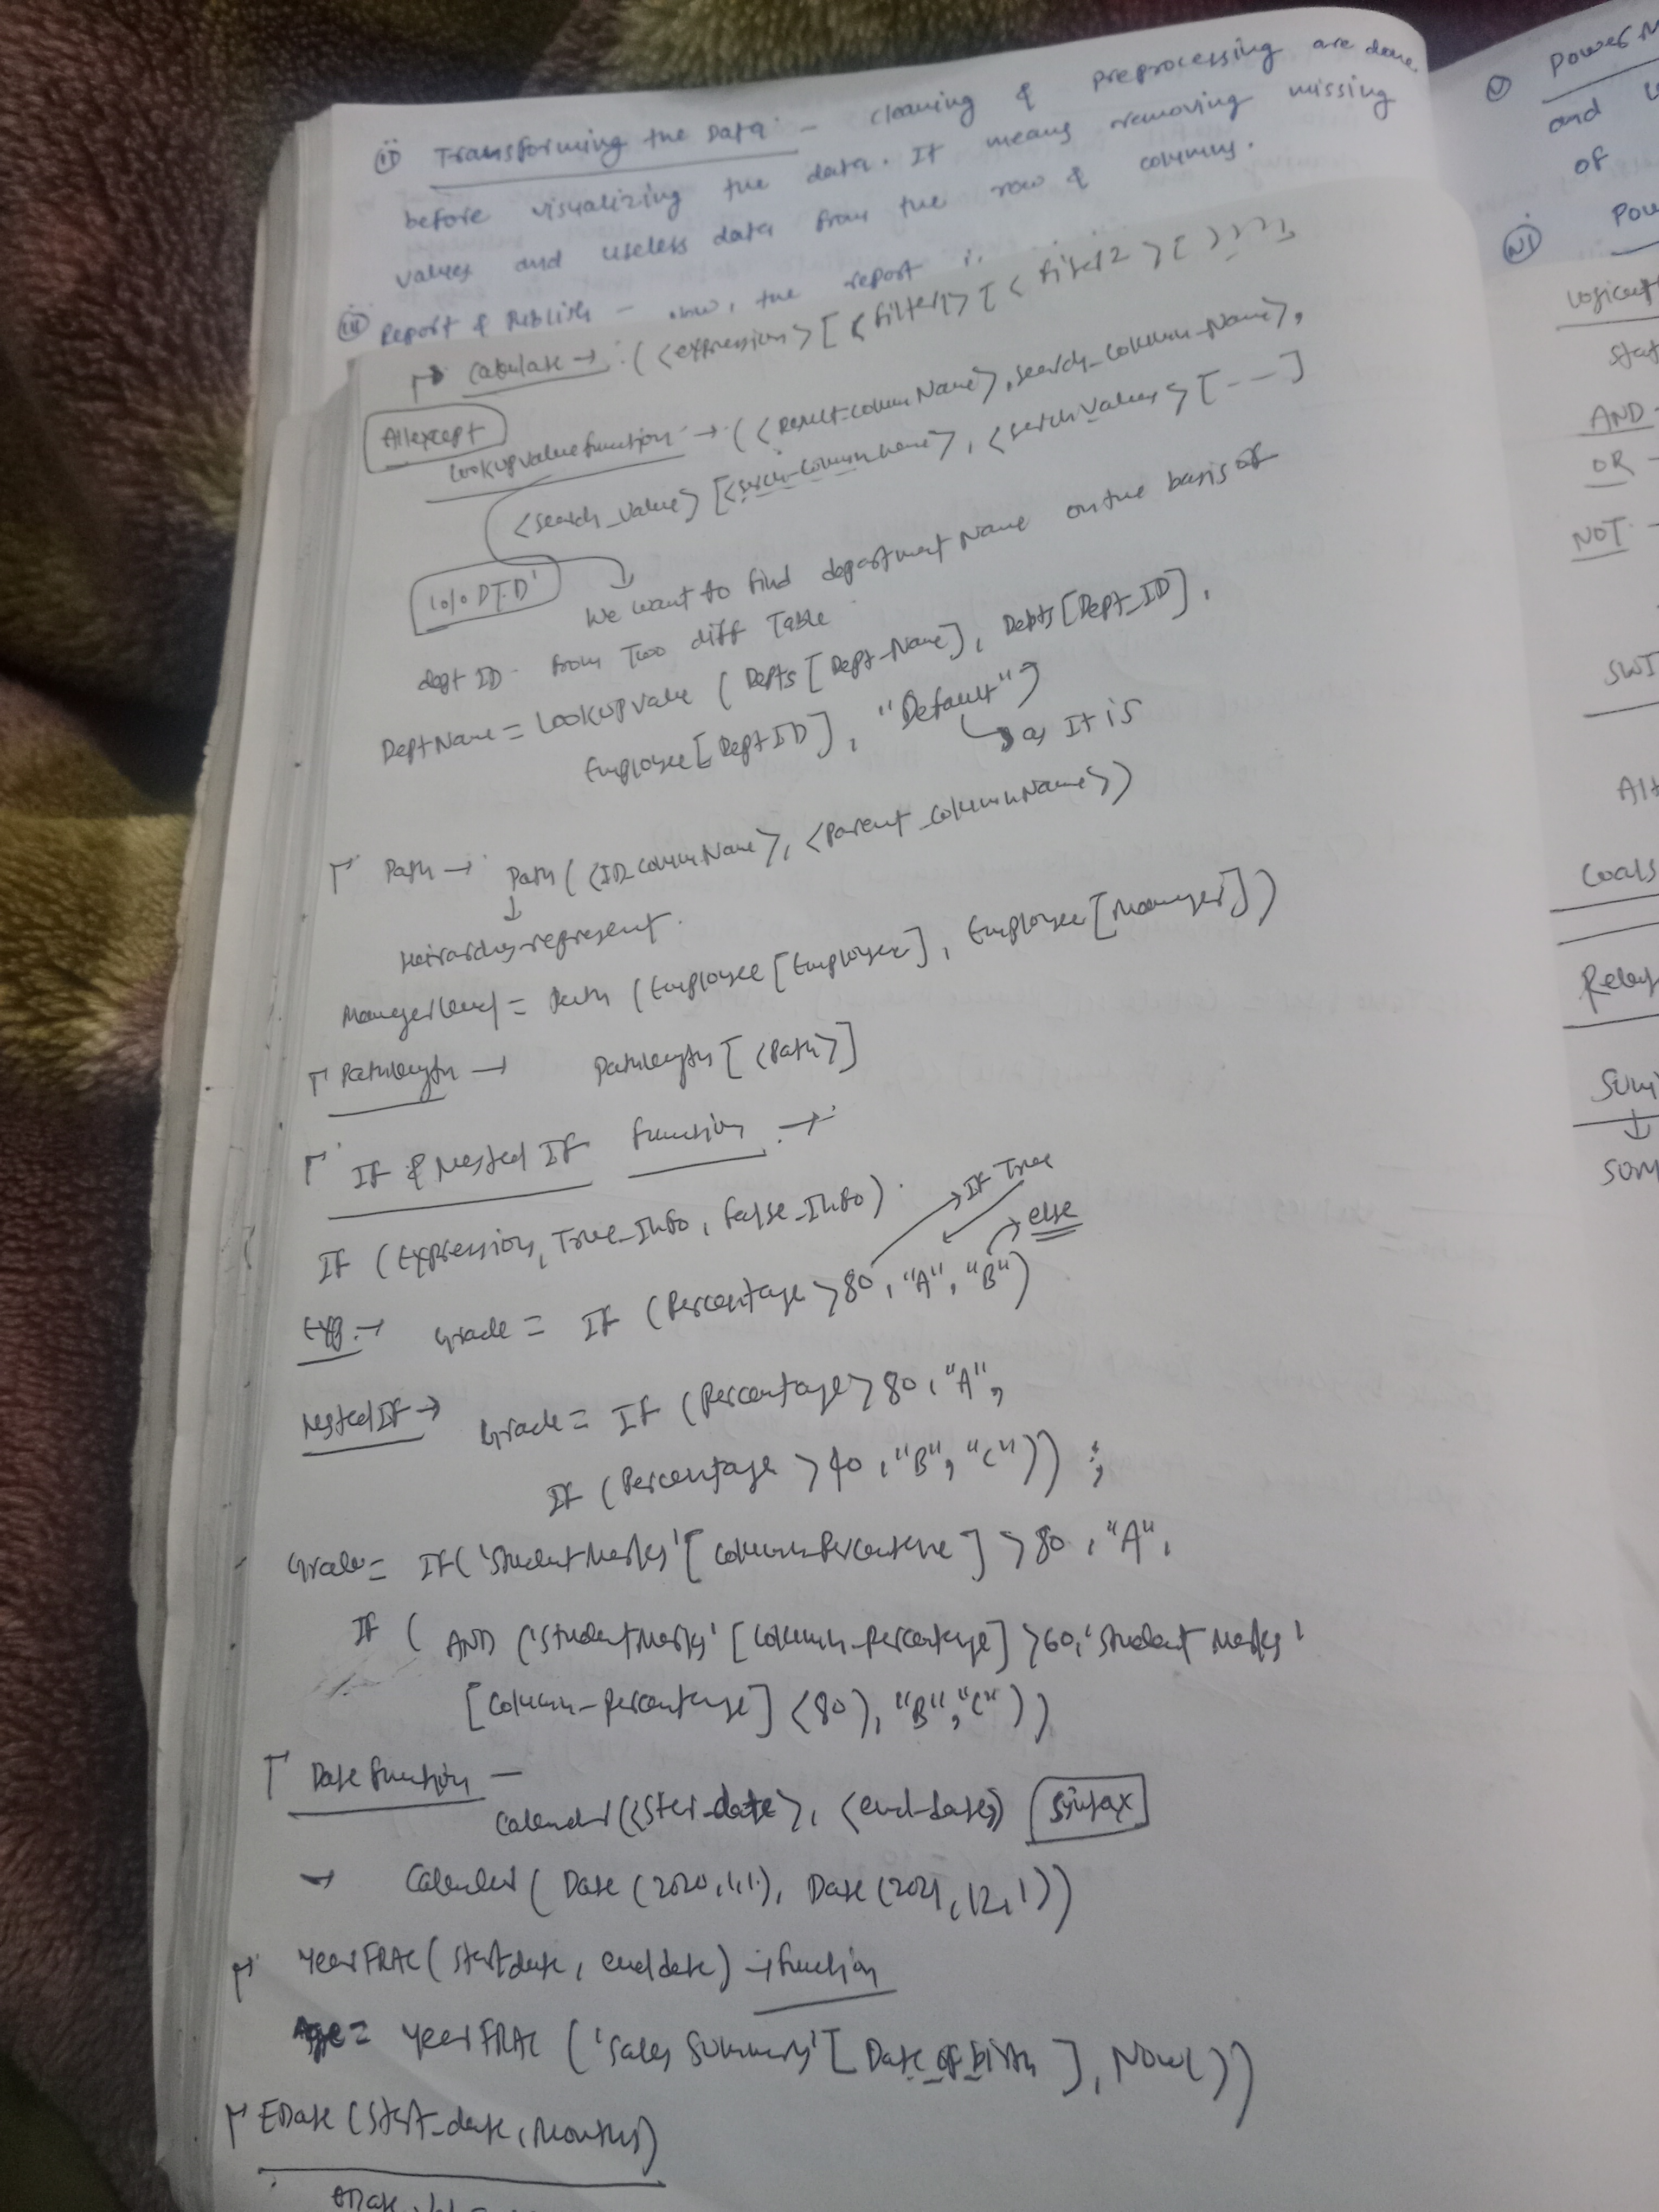 ii) Transforming the Data - cleaning & preprocessing are done
before visualizing the data. It means removing missing
values and useless data from the row & columns.
iii) Report & Publish - now, the report
Calculate → (<expression>[<filter1>[<filter2>[
Allexcept
Lookupvaluefunction → (<Result-columnName>, search_column_Name>,
<search_value>[<serch-column name>, <serchValue>[---]
We want to find department Name on the basis of
dept ID from Two diff Table
DeptName = Lookupvalue (Depts[Dept-Name], Depts[Dept_ID],
Employee[DeptID], "Default")
as It is
Path → Path (<ID_columnName>, <parent_columnName>)
Heirarchy represent.
Managerlevel = Path (Employee[Employee], Employee[Manager])
Pathlength → Pathlength[<Path>]
If & Nested If function →
If (Expression, True_Info, false_Info).
If True
else
Grade = If (Percentage >80, "A", "B")
NestedIf → Grade = If (Percentage >80, "A",
If (Percentage >40, "B", "C")) ;
Grade = If('StudentMarks'[Column-Percentage] >80, "A",
If ( AND ('StudentMarks'[Column-percentage] >60, 'Student Marks'
[Column-percentage] <80), "B", "C"))
Date function -
Calender(<Ster-date>, <end-date>) Syntax
→ Calender (Date (2020,1,1), Date (2021,12,1))
YearFRAC (Startdate, enddate) → function
Age = YearFRAC ('Sales Summary'[Date of birth], Now())
EDate (Start_date, Months)
V) Power
and
of
VI)
Logical
Stat
AND
OR
NOT
SWI
Relat
Sum
↓
Sum